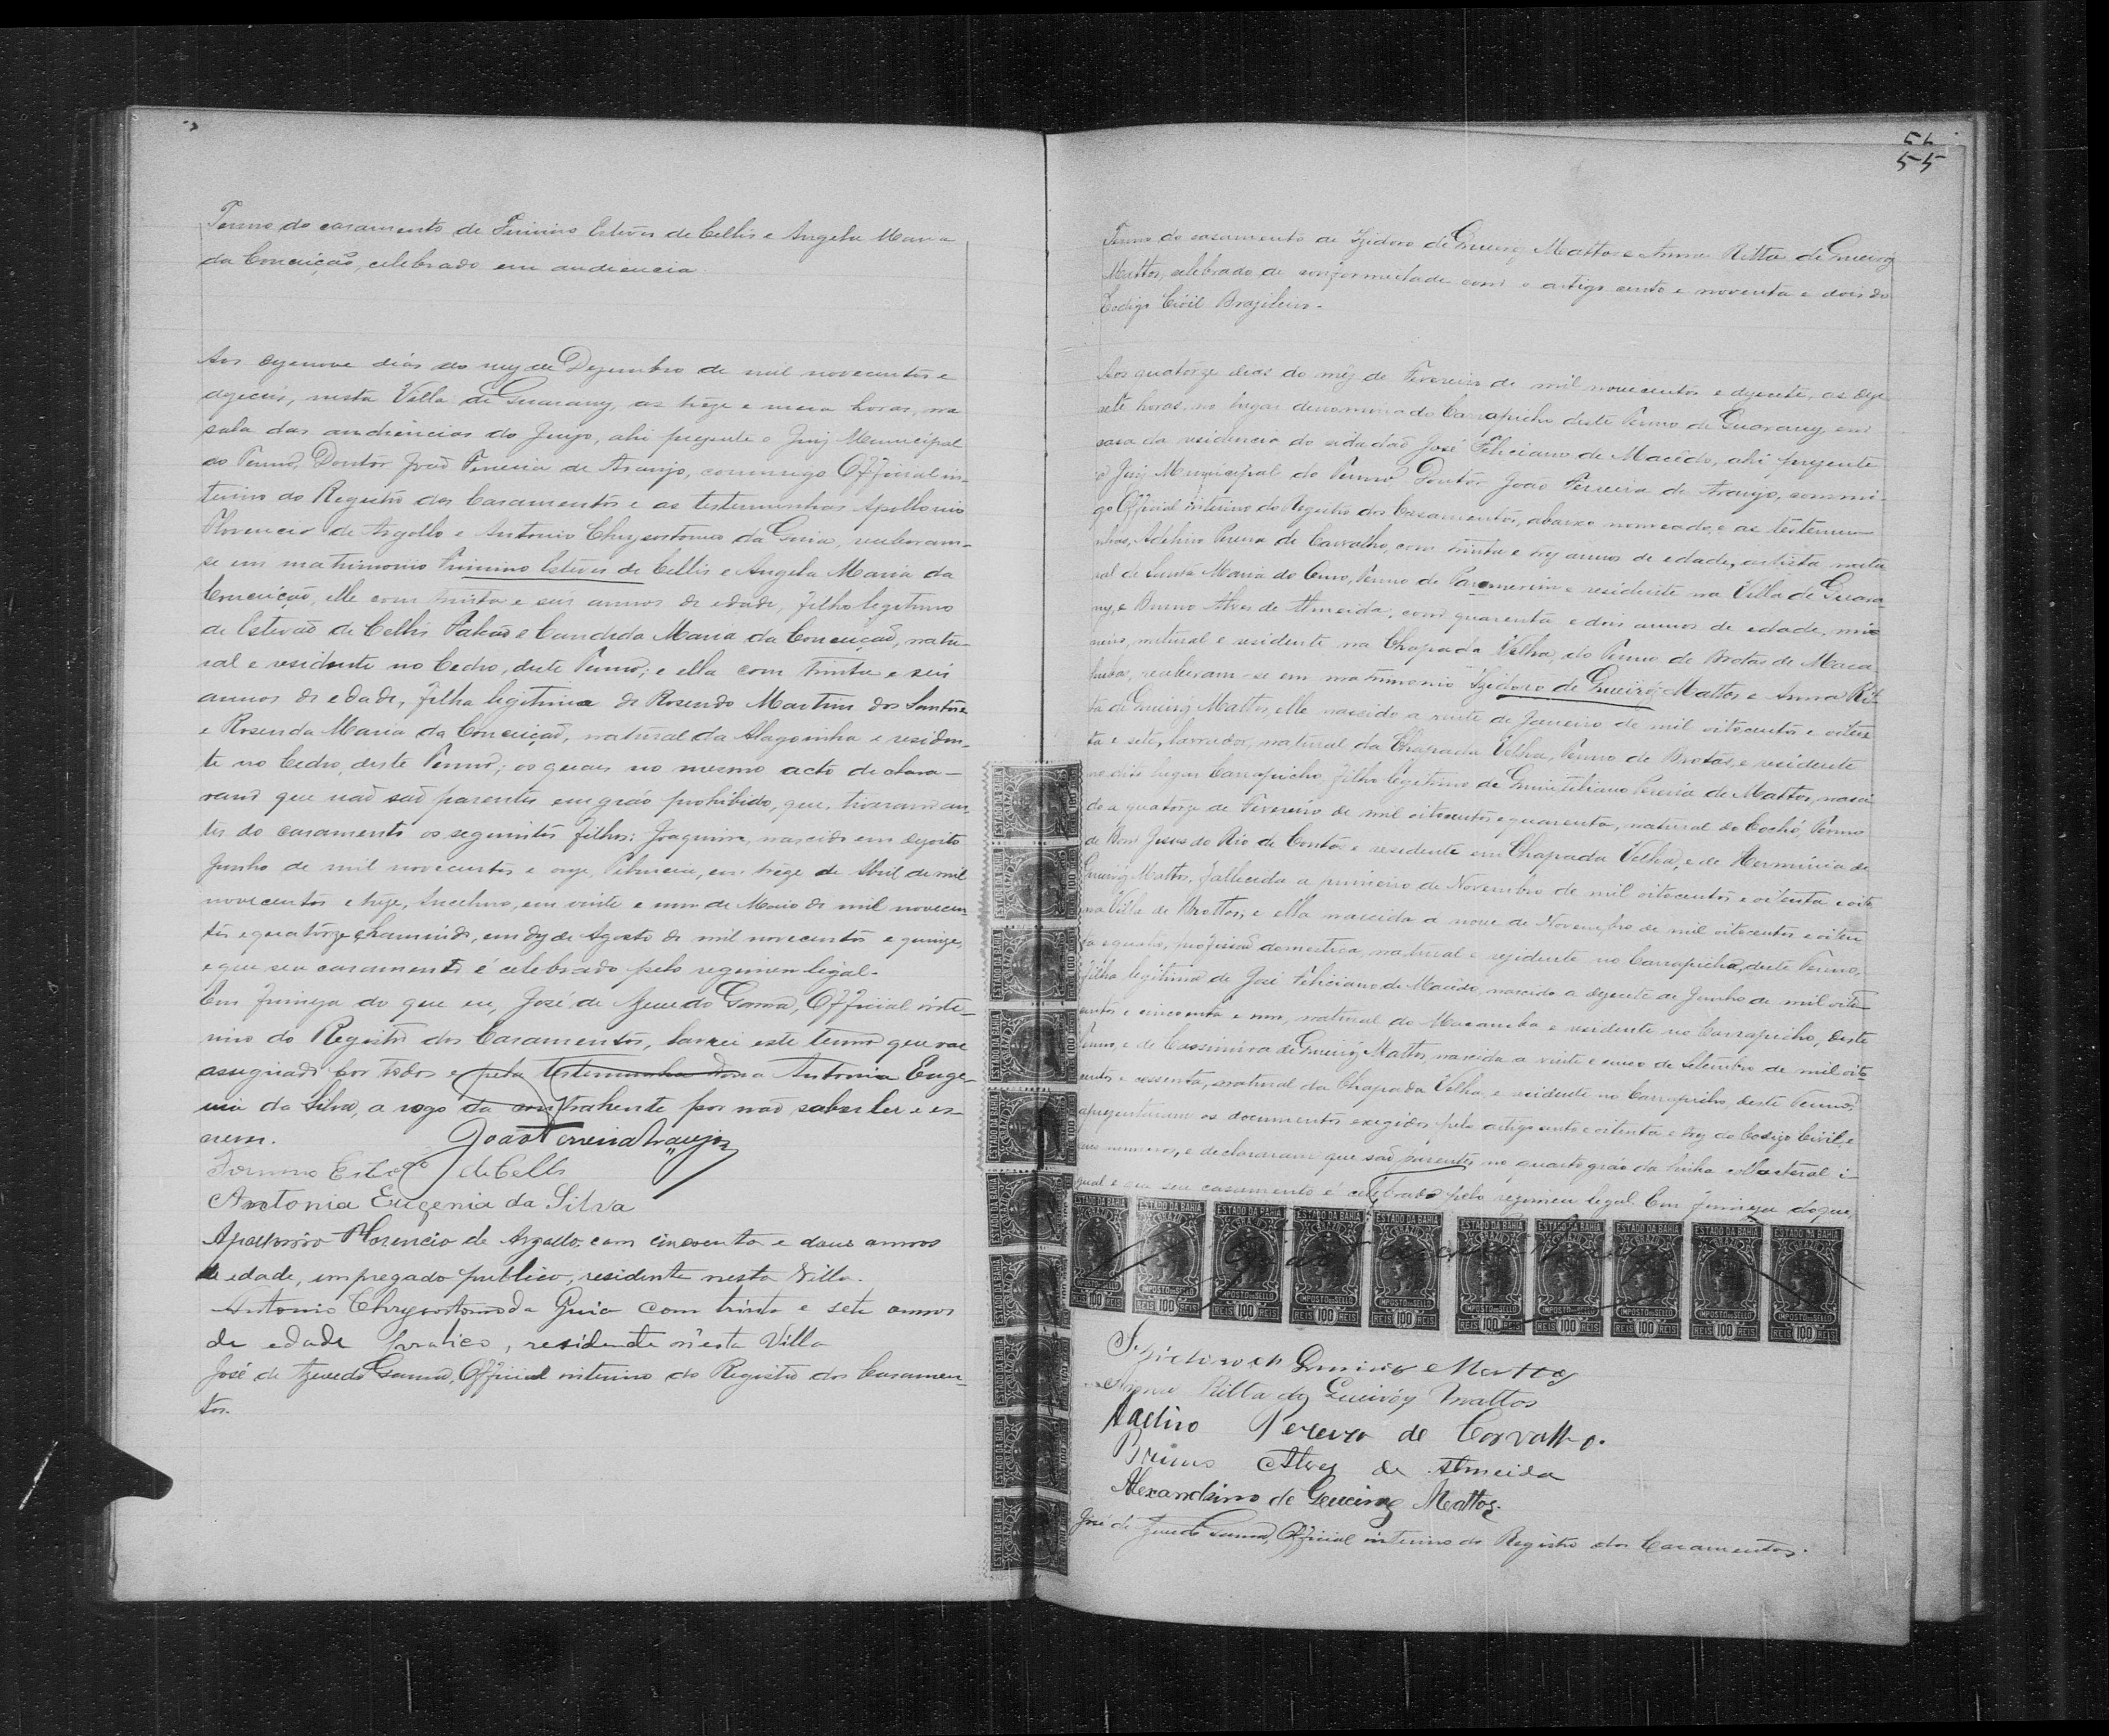 Termo do casamento de Firmino Esteves de Cellis e Angela Maria
da Conceição, celebrado em audiencia.
Aos dezenove dias do mez de Dezembro de mil novecentos e
dezeseis, nesta Villa de Guarany, as treze e meia horas, na
sala das audiencias do Juizo, ahi prezente o Juiz Municipal
do Termo, Doutor João Ferreira de Araujo, commigo Official in-
terino do Registro dos Casamentos e as testemunhas Apollonio
Florencio de Argollo e Antonio Chrysostomo da Guia, receberam-
se em matrimonio Firmino Esteves de Cellis e Angela Maria da
Conceição, elle com trinta e seis annos de edade, filho legitimo
de Estevão de Cellis Falcão e Candida Maria da Conceição, natu-
ral e residente no Cedro, deste Termo; e ella com trinta e seis
annos de edade, filha legitima de Rosendo Martins dos Santos
e Rosenda Maria da Conceição, natural da Alagoinha e residen-
te no Cedro, deste Termo; os quaes no mesmo acto declara-
ram que não são parentes em gráo prohibido, que, tiveram an-
tes do casamento os seguintes filhos: Joaquim, nascido em dezoito
Junho de mil novecentos e onze, em treze de Abril de mil
novecentos e treze, em vinte e um de Maio de mil novecen-
tos e quatorze e em dez de Agosto de mil novecentos e quinze,
e que seu casamento é celebrado pelo regimen legal.
Em firmeza do que eu, José de Azevedo Gama, Official inte-
rino do Registro dos Casamentos, lavrei este termo que vae
assignado por todos e pela testemunha dona Antonia Euge-
nia da Silva, a rogo da contrahente por não saber ler e es-
crever. João Ferreira Araujo
Firmino Esteves de Cellis
Antonia Eugenia da Silva
Apollonio Florencio de Argollo, com cincoenta e dous annos
de edade, empregado publico, residente nesta Villa.
Antonio Chrysostomo da Guia com trinta e sete annos
de edade pratico, residente n'esta Villa
José de Azevedo Gama, Official interino do Registro dos Casamen-
tos.
54
55
Termo do casamento de Izidoro de Queiroz Mattos e Anna Ritta de Queiroz
Mattos, celebrado de conformidade com o artigo cento e noventa e dois do
Codigo Civil Brazileiro.
Aos quatorze dias do mez de Fevereiro de mil novecentos e dezesete, as deze-
sete horas, no lugar denominado Carrapicho deste Termo de Guarany, em
casa da residencia do cidadão José Feliciano de Macêdo, ahi prezente
o Juiz Municipal do Termo, Doutor João Ferreira de Araujo, commi-
go Official interino do Registro dos Casamentos, abaixo nomeado, e as testemu-
nhas, Adelino Pereira de Carvalho, com trinta e tres annos de edade, artista, natu-
ral de Santa Maria do Ouro, Termo de Paramerim e residente na Villa de Guara-
ny, e Bruno Alves de Almeida, com quarenta e dois annos de edade, mi-
neiro, natural e residente na Chapada Velha, do Termo de Brotas de Maca-
hubas, receberam-se em matrimonio Izidoro de Queiroz Mattos e Anna Rit-
ta de Queiroz Mattos, elle nascido a vinte de Janeiro de mil oitocentos e oiten-
ta e sete, lavrador, natural da Chapada Velha, Termo de Brotas, e residente
neste lugar Carrapicho, filho legitimo de Quintiliano Pereira de Mattos, nasci-
do a quatorze de Fevereiro de mil oitocentos e quarenta, natural do Cochó, Termo
de Bom Jesus do Rio de Contas e residente em Chapada Velha, e de Herminia de
Queiroz Mattos, fallecida a primeiro de Novembro de mil oitocentos e oitenta e oito
na Villa de Brottas, e ella nascida a nove de Novembro de mil oitocentos e oiten-
ta e quatro, profissão domestica, natural e rezidente no Carrapicho, deste Termo,
filha legitima de José Feliciano de Macêdo, nascido a dezesete de Junho de mil oito-
centos e cincoenta e um, natural de Macauba e residente no Carrapicho, deste
Termo, e de Cassimira de Queiroz Mattos, nascida a vinte e cinco de Setembro de mil oito-
centos e sessenta, natural da Chapada Velha, e residente no Carrapicho, deste Termo;
aprezentaram os documentos exigidos pelo artigo cento e oitenta e tres do Codigo Civil, e
seus numeros, e declararam que são parentes no quarto gráo da linha collateral i-
gual e que seu casamento é celebrado pelo regimen legal. Em firmeza do que,
ESTADO DA BAHIA
BRAZIL
IMPOSTO DO SELLO
REIS 100 REIS
Izidoro de Queiroz Mattos
Anna Ritta de Queiróz Mattos
Adelino Pereira de Carvalho.
Bruno Alves de Almeida
Alexandrino de Queiroz Mattos.
José de Azevedo Gama, Official interino do Registro dos Casamentos.